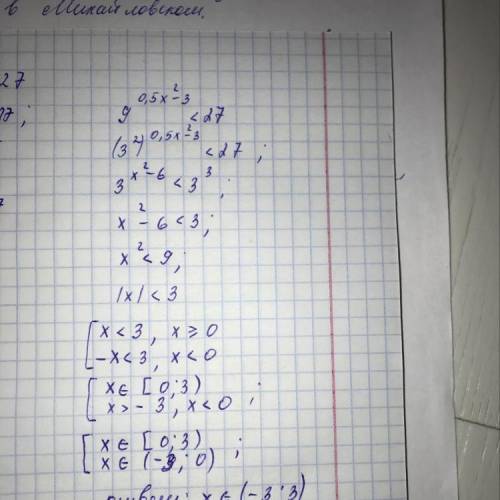 в Михайловском.
27
27;
9^{0,5x²-3} < 27
(3²)^{0,5x²-3} < 27;
3^{x²-6} < 3³;
x² - 6 < 3;
x² < 9;
|x| < 3
[ x < 3, x ≥ 0
-x < 3, x < 0
[ x ∈ [0; 3)
x > -3, x < 0;
[ x ∈ [0; 3)
x ∈ (-3; 0);
ответ: x ∈ (-3; 3)